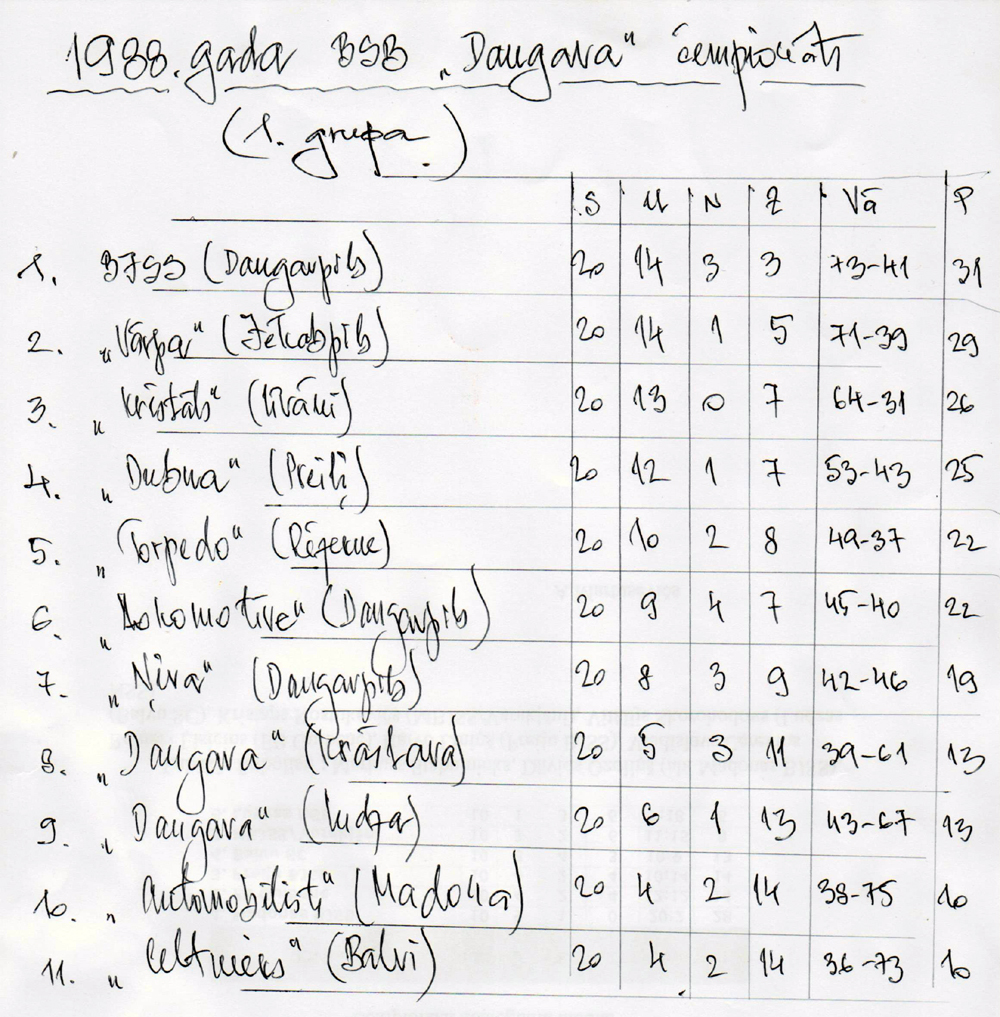 1988. gada BSB „Daugava“ čempionāts
(1. grupa)
S U N Z Vā P
1. BJSS (Daugavpils) 20 14 3 3 73-41 31
2. „Vārpa“ (Jēkabpils) 20 14 1 5 71-39 29
3. „Kristāls“ (Līvāni) 20 13 0 7 64-31 26
4. „Dubna“ (Preiļi) 20 12 1 7 53-43 25
5. „Torpedo“ (Rēzekne) 20 10 2 8 49-37 22
6. „Lokomotīve“ (Daugavpils) 20 9 4 7 45-40 22
7. „Niva“ (Daugavpils) 20 8 3 9 42-46 19
8. „Daugava“ (Krāslava) 20 5 3 11 39-61 13
9. „Daugava“ (Ludza) 20 6 1 13 43-67 13
10. „Automobilists“ (Madona) 20 4 2 14 38-75 10
11. „Celtnieks“ (Balvi) 20 4 2 14 36-73 10